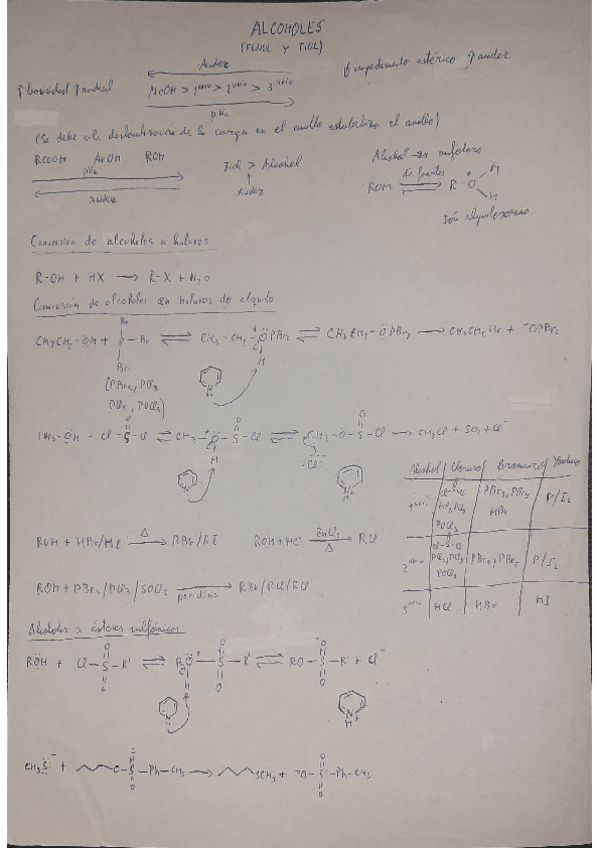 ALCOHOLES
(FENOL y TIOL)
Acidez
MeOH > 1ario > 2ario > 3ario
pKa
↑ impedimento estérico ↑ acidez
(Se debe a la deslocalización de la carga en el anillo estabiliza el anillo)
RCOOH ArOH ROH
pKa
Acidez
Tiol > Alcohol
↑
Acidez
Alcohol → anfótero
ROH ⇌ R-O+ H H
Ión alquiloxonio
Conversión de alcoholes a haluros
R-OH + HX → R-X + H2O
Conversión de alcoholes en haluros de alquilo
CH3CH2-ÖH + Br P Br Br ⇌ CH3-CH2-O+PBr2 H ⇌ CH3CH2-ÖPBr2 → CH3CH2Br + -OPBr2
(PBr3, PCl3
PCl5, POCl3)
N
CH3-ÖH + Cl-S-Cl O ⇌ CH3-O+-S-Cl O H ⇌ CH3-O-S-Cl O → CH3Cl + SO2 + Cl-
Cl-
N
N+ H
Alcohol Cloruro Bromuro Yoduro
1ario Cl-S-Cl PCl3, PCl5 POCl3 PBr3, PBr5 HBr P/I2
2ario Cl-S-Cl PCl3, PCl5 POCl3 PBr3, PBr5 P/I2
3ario HCl HBr HI
ROH + HBr/HI Δ→ RBr/RI ROH + HCl ZnCl2 Δ→ RCl
ROH + PBr3/PCl3/SOCl2 piridina→ RBr/RCl/RCl
Alcoholes a ésteres sulfónicos
RÖH + Cl-S-R' O O ⇌ RO+-S-R' O O H ⇌ RO-S-R' O O + Cl-
N
N+ H
CH3S- + O-S-Ph-CH3 O O → SCH3 + -O-S-Ph-CH3 O O